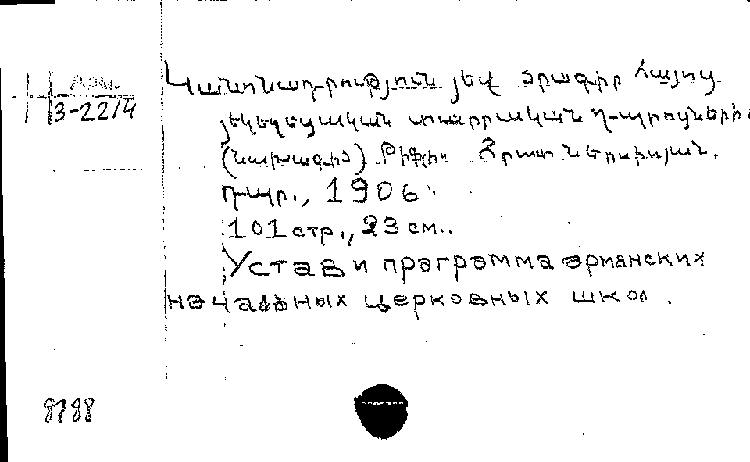 Арм.
3-2214
Կանոնադրություն յեվ ծրագիր հայոց
յեկեղեցական տարրական դպրոցների
(նախագիծ) Թիֆլիս Հրատ Ներսիսյան.
դպր., 1906
101 стр., 23 см..
Устав и программа армянских
начальных церковных школ.
8788